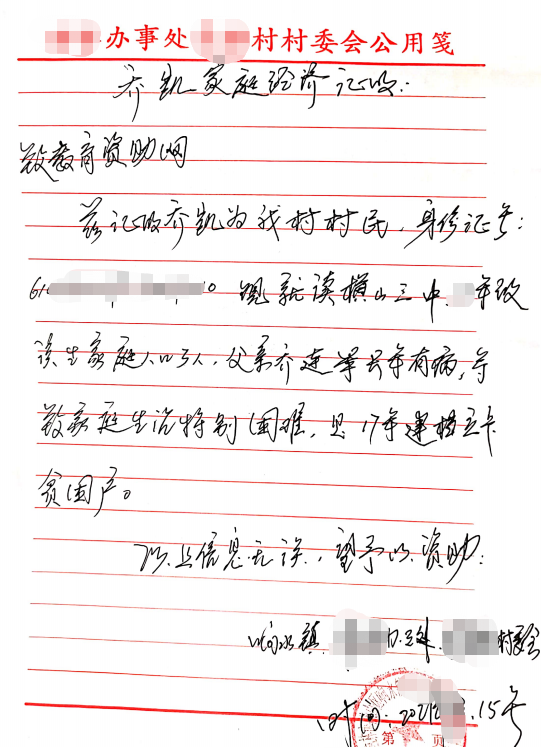 办事处 村村委会公用笺
乔凯家庭经济证明:
致教育资助网
兹证明乔凯为我村村民,身份证号:
61 10 现就读横山三中, 年级
该生家庭人口5人,父亲乔连 常年有病,导
致家庭生活特别困难,见17年建档立卡
贫困户。
以上信息无误,望予以资助:
响水镇 办事处 村委会
时间:202 15号
第 页